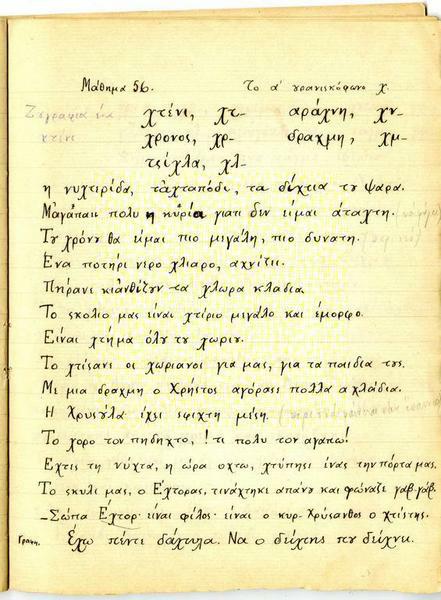 Μάθημα 56. Το α' γρανισκόφωνο χ.
Ζεγραφιά ένα χτένι, χτ- αράχνη, χν-
χτένι χρονος, χρ- δραχμη, χμ-
τσίχλα, χλ-
η νυχτιρίδα, τα̇χταπόδι, τα δίχτια τυ ψαρα.
Μ'αγαπαει πολυ η κυρία γιατι δεν είμαι άταχτη.
Τυ χρόνυ θα είμαι πιο μιγάλη, πιο δυνατη.
Ενα ποτήρι νερο χλιαρο, αχνίζει.
Πήρανε κι ανθίζυν τα χλωρα κλαδια.
Το σκολιο μας είναι χτίριο μιγάλο και έμορφο.
Είναι χτήμα όλυ τυ χωριυ.
Το χτίσανε οι χωριανοι για μας, για τα παιδια τυς.
Με μια δραχμη ο Χρήστος αγόρασε πολλα αχλάδια.
Η Χρυσύλα έχει σφιχτη μέση.
Το χορο τον πηδηχτο, ! τι πολυ τον αγαπω!
Εχτις τη νύχτα, η ώρα οχτω, χτύπησε ένας την πόρτα μας.
Το σκυλι μας, ο Εχτορας, τινάχτηκε απάνυ και φώναζε γαβ-γάβ.
– Σώπα Εχτορ· είναι φίλος· είναι ο κυρ-Χρύσανθος ο χτίστης.
Γραφη. Εχω πέντε δάχτυλα. Να ο δείχτης πυ δείχνει.